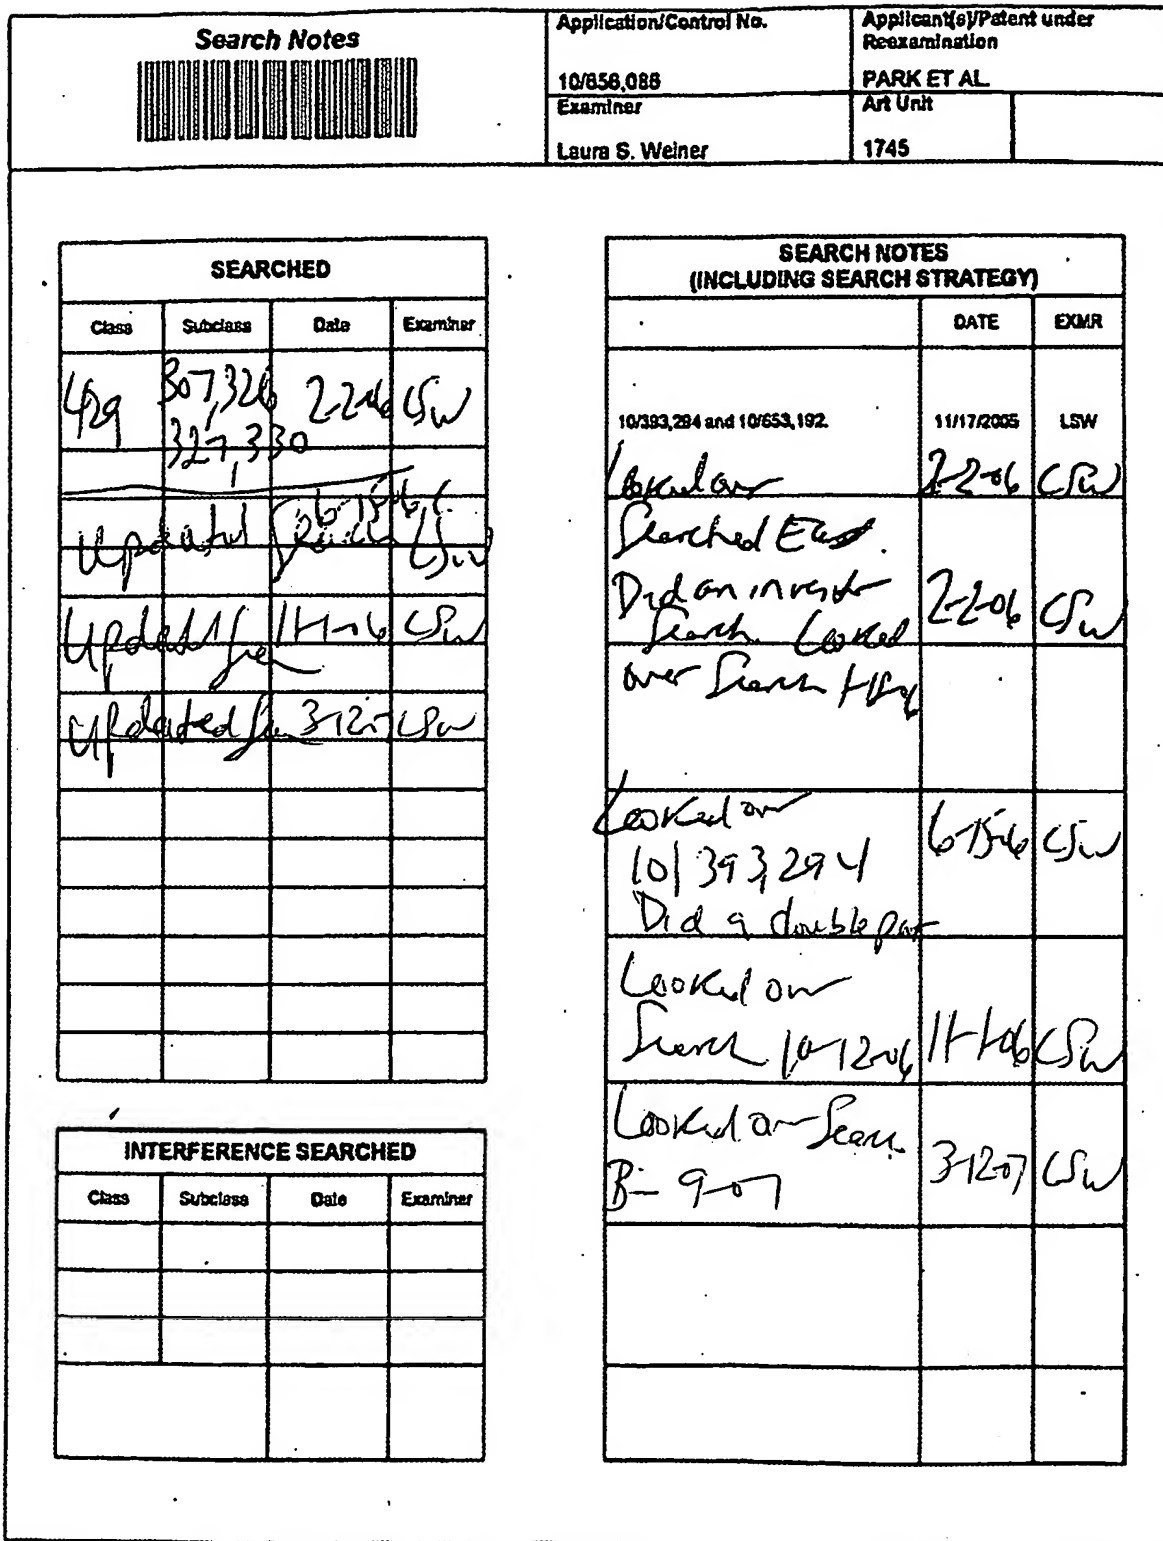 Search Notes
Application/Control No.
10/656,086
Applicant(s)/Patent under
Reexamination
PARK ET AL.
Examiner
Laura S. Weiner
Art Unit
1745
SEARCHED
Class Subclass Date Examiner
429 307,326 2-2-06 LSW
327,330
Updated Search 6-15-06 LSW
Updated 11-1-06 LSW
Updated 3-12-07 LSW
INTERFERENCE SEARCHED
Class Subclass Date Examiner
SEARCH NOTES
(INCLUDING SEARCH STRATEGY)
DATE EXMR
10/393,294 and 10/653,192. 11/17/2005 LSW
Looked over 2-2-06 LSW
Searched East.
Did an inventor 2-2-06 LSW
Search. Looked
over Search
Looked over 6-15-06 LSW
10/393,294
Did a double pat
Looked over
Search 10-12-06 11-1-06 LSW
Looked over Search 3-12-07 LSW
9-07